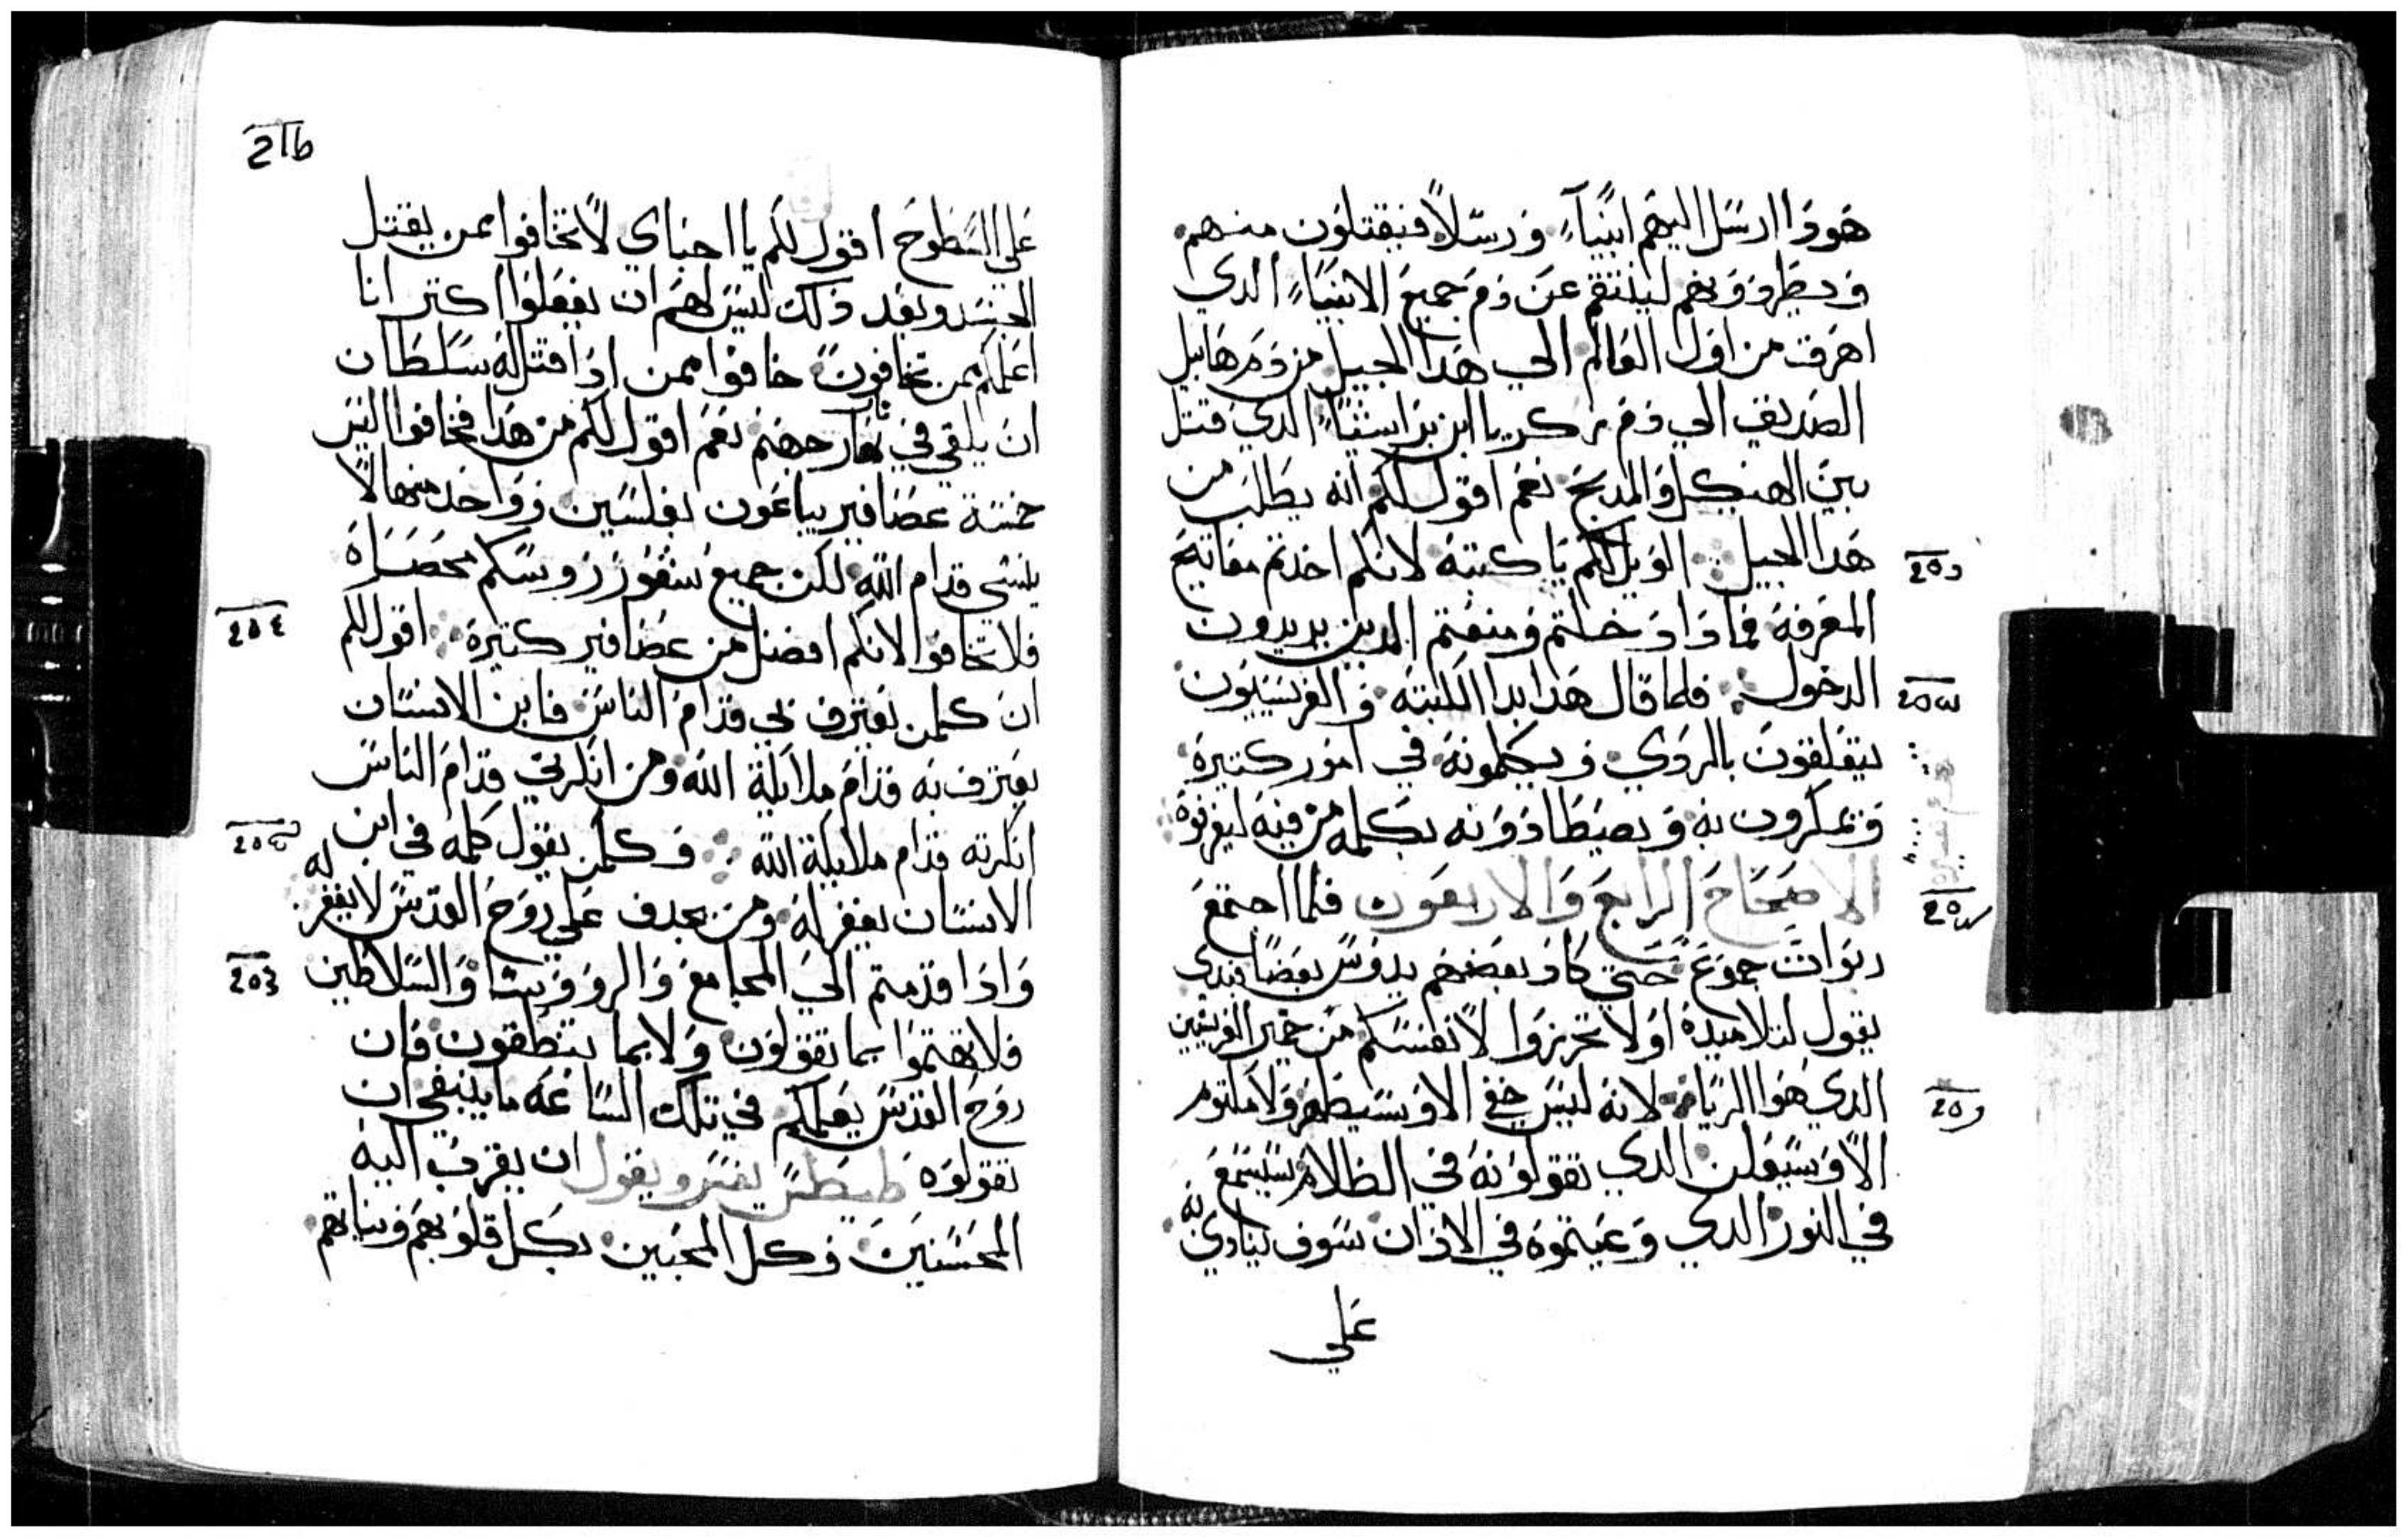 هوذا ارسل اليهم انبياء ورسلا فيقتلون منهم
ويطردونهم لينتقم عن دم جميع الانبياء الدي
اهرق من اول العالم الي هدا الجيل من دم هابيل
الصديق الي دم زكريا ابن براسيا الدي قتل
بين الهيكل والمدبح نعم اقول لكم انه يطلب من
هدا الجيل الويل لكم يا كتبة لانكم اخدتم مفاتيح
المعرفة فما دادخلتم ومنعتم الدين يريدون
الدخول فلما قال هدا بدا الكتبه والفريسيون
يتقلقون بالردي ويكلمونه في امور كتيرة
ويمكرون به ويصيطادونه بكلمه من فيه ليقرفوه
الاصحاح الرابع والاربعون فلما اجتمع
ربوات جموع حتي كاد بعضهم يدوس بعضا فبدى
يقول لتلاميده اولا تحرزوا لانفسكم من خمير الفريسين
الدي هوا الريا لانه ليس خفي الا وسيظهر ولا مكتوم
الا وسيعلن الدي تقولونه في الظلام سيسمع
في النور الدي وعيتموه في الادان سوف ينادي به
علي
علي السطوح اقول لكم يا احباي لا تخافوا ممن يقتل
الجسد وبعد دلك ليس لهم ان يفعلوا اكتر انا
اعلمكم ممن تخافون خافوا ممن ادا قتل له سلطان
ان يلقي في نار جهنم نعم اقول لكم من هدا فخافوا اليس
خمسة عصافير يباعون بفلسين وواحد منها لا
ينسي قدام الله لكن جميع شعور روسكم محصاه
فلا تخافوا لانكم افضل من عصافير كتيرة اقول لكم
ان كلمن يعترف بي قدام الناس فابن الانسان
يعترف به قدام ملائكة الله ومن انكرني قدام الناس
انكرته قدام ملايكة الله وكلمن يقول كلمه في ابن
الانسان يغفر له ومن يجدف علي روح القدس لا يغفر له
وادا قدمتم الي المجامع والرووسا والسلاطين
فلا تهتموا بما تقولون ولا بما تنطقون فان
روح القدس يعلمكم في تلك الساعه ما ينبغي ان
تقولوه طيطس يفسر ويقول ان يقرب اليه
المحسنين وكل المحبين بكل قلوبهم ونياتهم